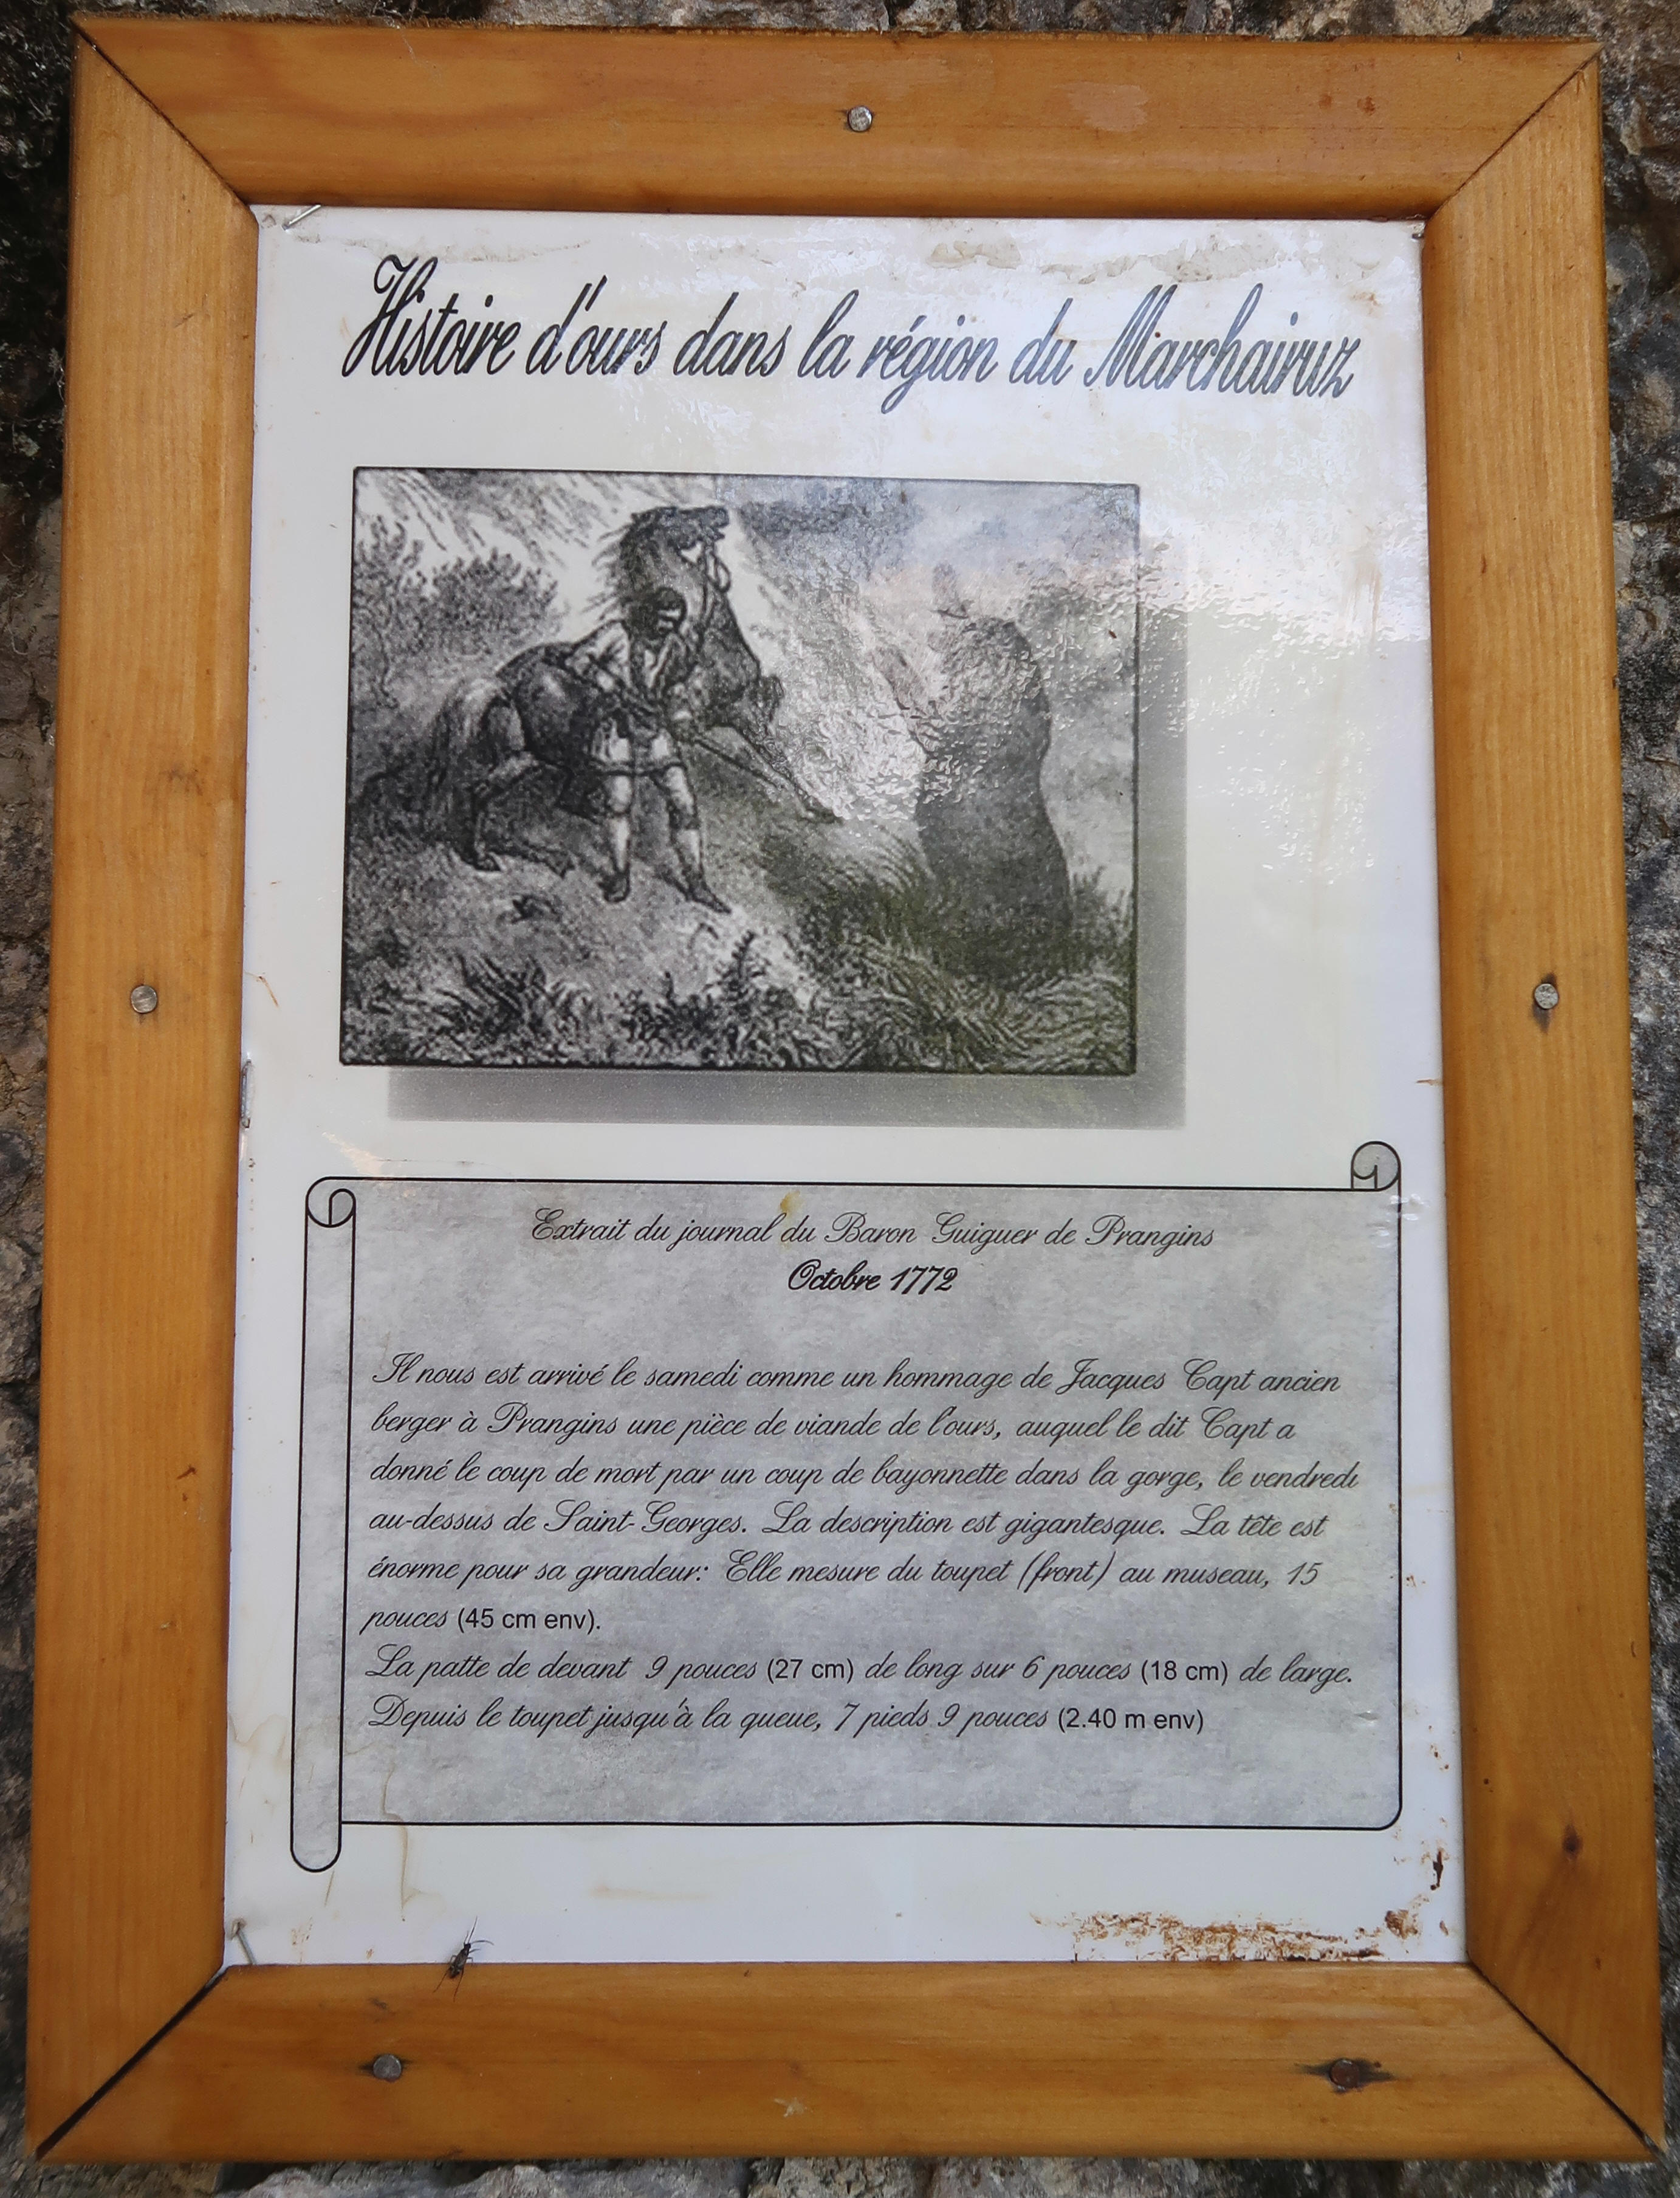 Histoire d'ours dans la région du Marchairuz
Extrait du journal du Baron Guiguer de Prangins
Octobre 1772
Il nous est arrivé le samedi comme un hommage de Jacques Capt ancien
berger à Prangins une pièce de viande de l'ours, auquel le dit Capt a
donné le coup de mort par un coup de bayonnette dans la gorge, le vendredi
au-dessus de Saint-Georges. La description est gigantesque. La tête est
énorme pour sa grandeur: Elle mesure du toupet (front) au museau, 15
pouces (45 cm env).
La patte de devant 9 pouces (27 cm) de long sur 6 pouces (18 cm) de large.
Depuis le toupet jusqu'à la queue, 7 pieds 9 pouces (2.40 m env)